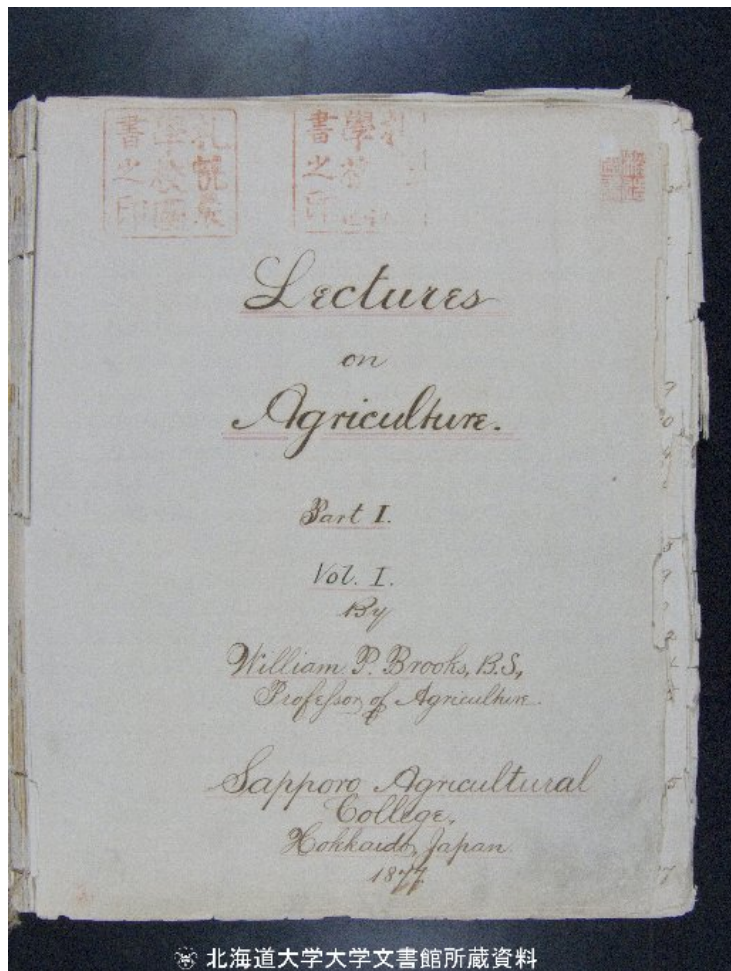 札幌農
學校圖
書之印
Lectures
on
Agriculture.
Part I.
Vol. I.
By
William P. Brooks, B.S.,
Professor of Agriculture.
Sapporo Agricultural
College,
Hokkaido, Japan
1877
北海道大学大学文書館所蔵資料